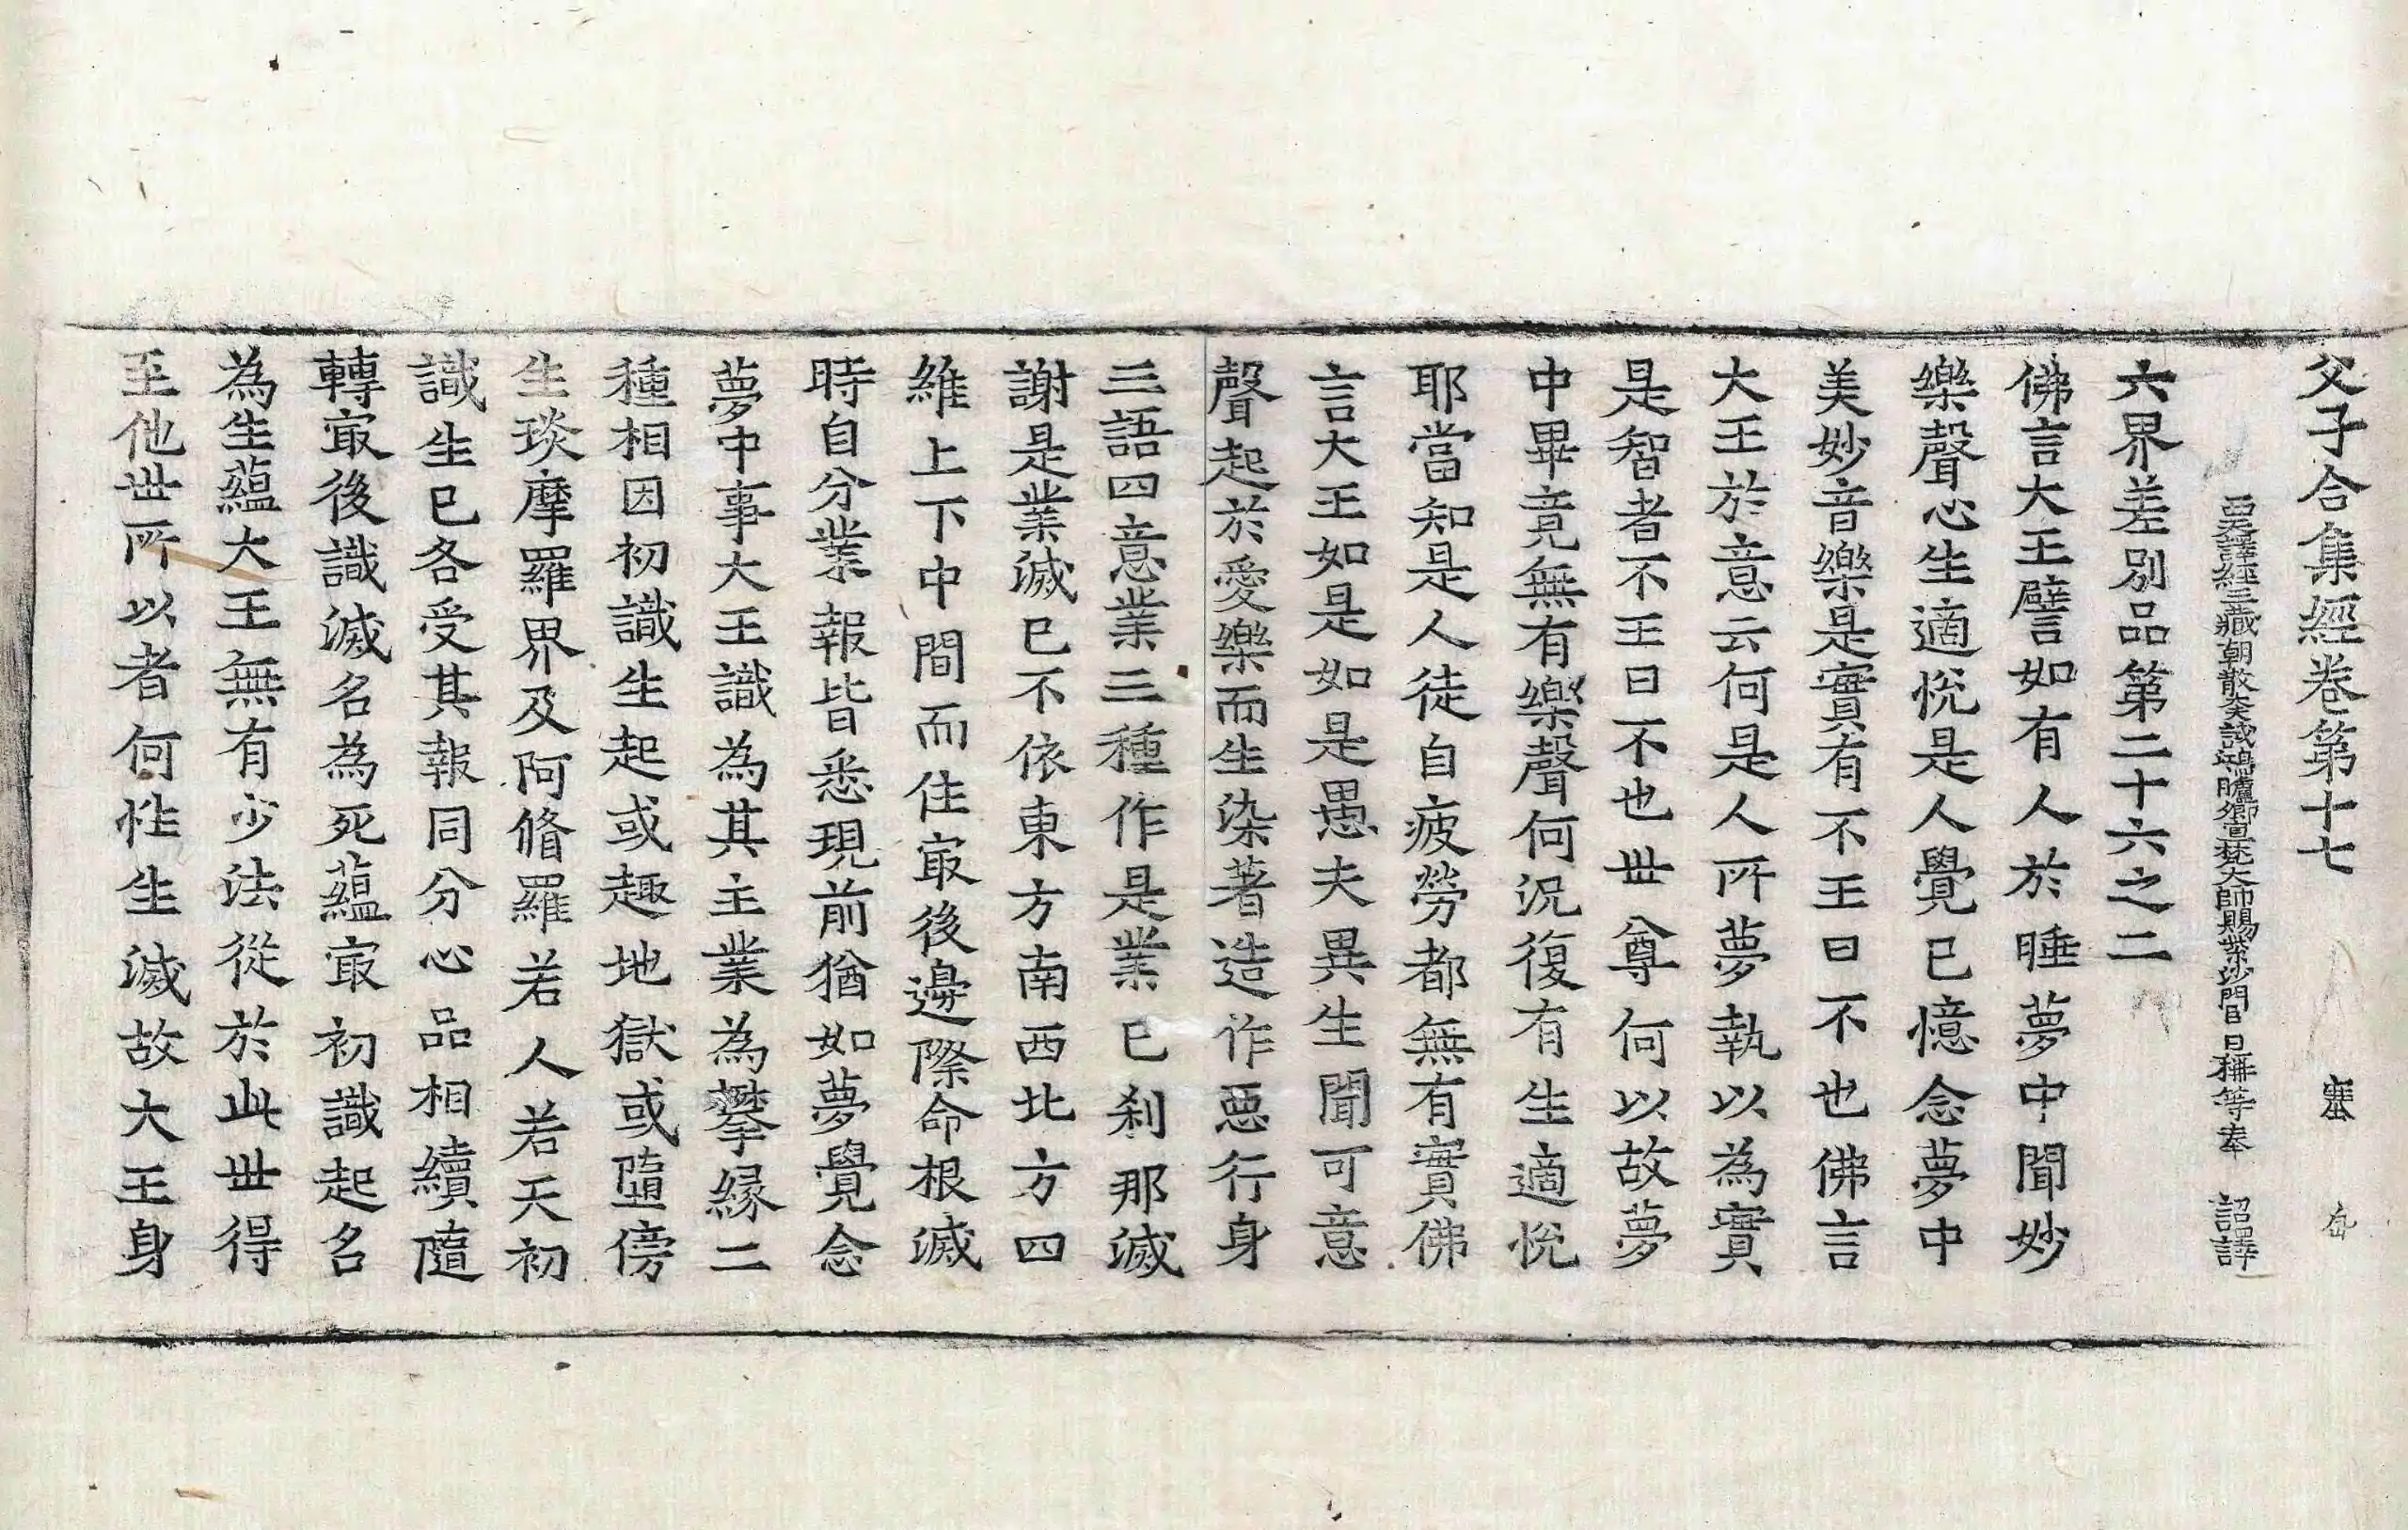 父子合集經卷第十七　塞
西天譯經三藏朝散大夫試鴻臚卿宣梵大師賜紫沙門臣日稱等奉　詔譯
六界差別品第二十六之二
佛言大王譬如有人於睡夢中聞妙
樂聲心生適悅是人覺已憶念夢中
美妙音樂是實有不王曰不也佛言
大王於意云何是人所夢執以為實
是智者不王曰不也世尊何以故夢
中畢竟無有樂聲何況復有生適悅
耶當知是人徒自疲勞都無有實佛
言大王如是如是愚夫異生聞可意
聲起於愛樂而生染著造作惡行身
三語四意業三種作是業已剎那滅
謝是業滅已不依東方南西北方四
維上下中間而住㝡後邊際命根滅
時自分業報皆悉現前猶如夢覺念
夢中事大王識為其主業為攀緣二
種相因初識生起或趣地獄或墮傍
生琰摩羅界及阿脩羅若人若天初
識生已各受其報同分心品相續隨
轉㝡後識滅名為死蘊㝡初識起名
為生蘊大王無有少法從於此世得
至他世所以者何性生滅故大王身